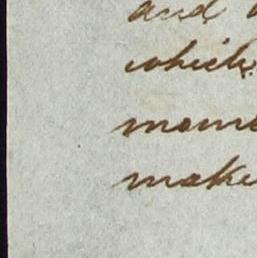 and
which
mome
make